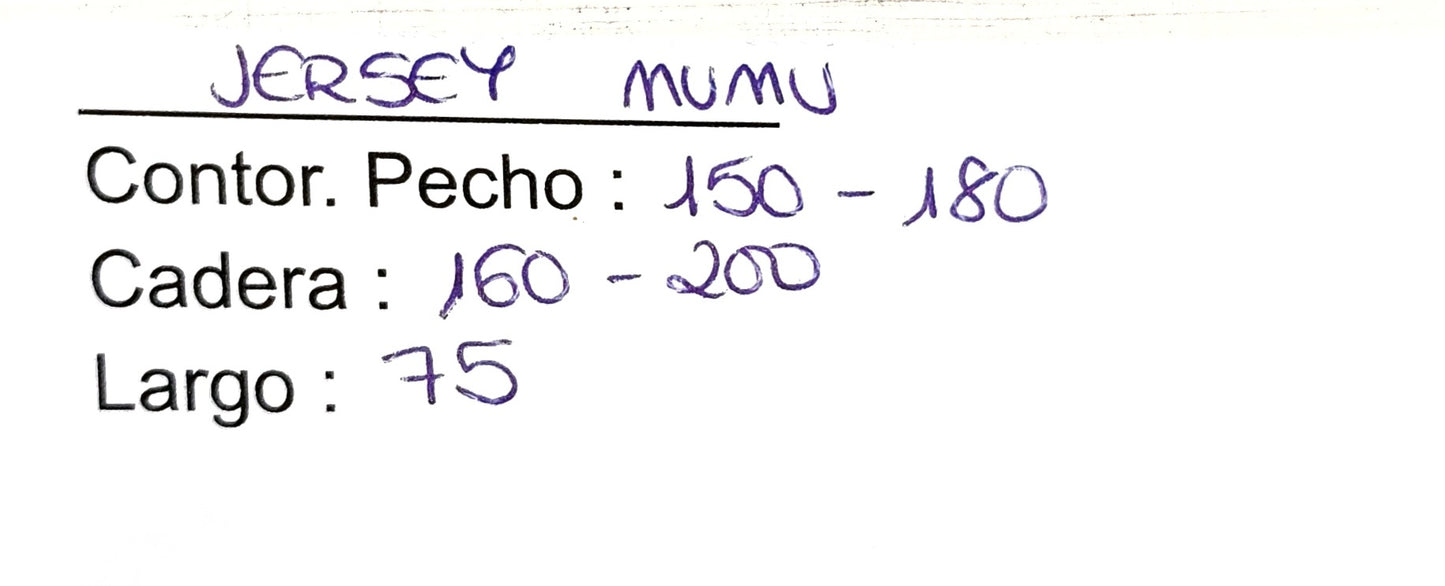 JERSEY MUMU
Contor. Pecho : 150 - 180
Cadera : 160 - 200
Largo : 75